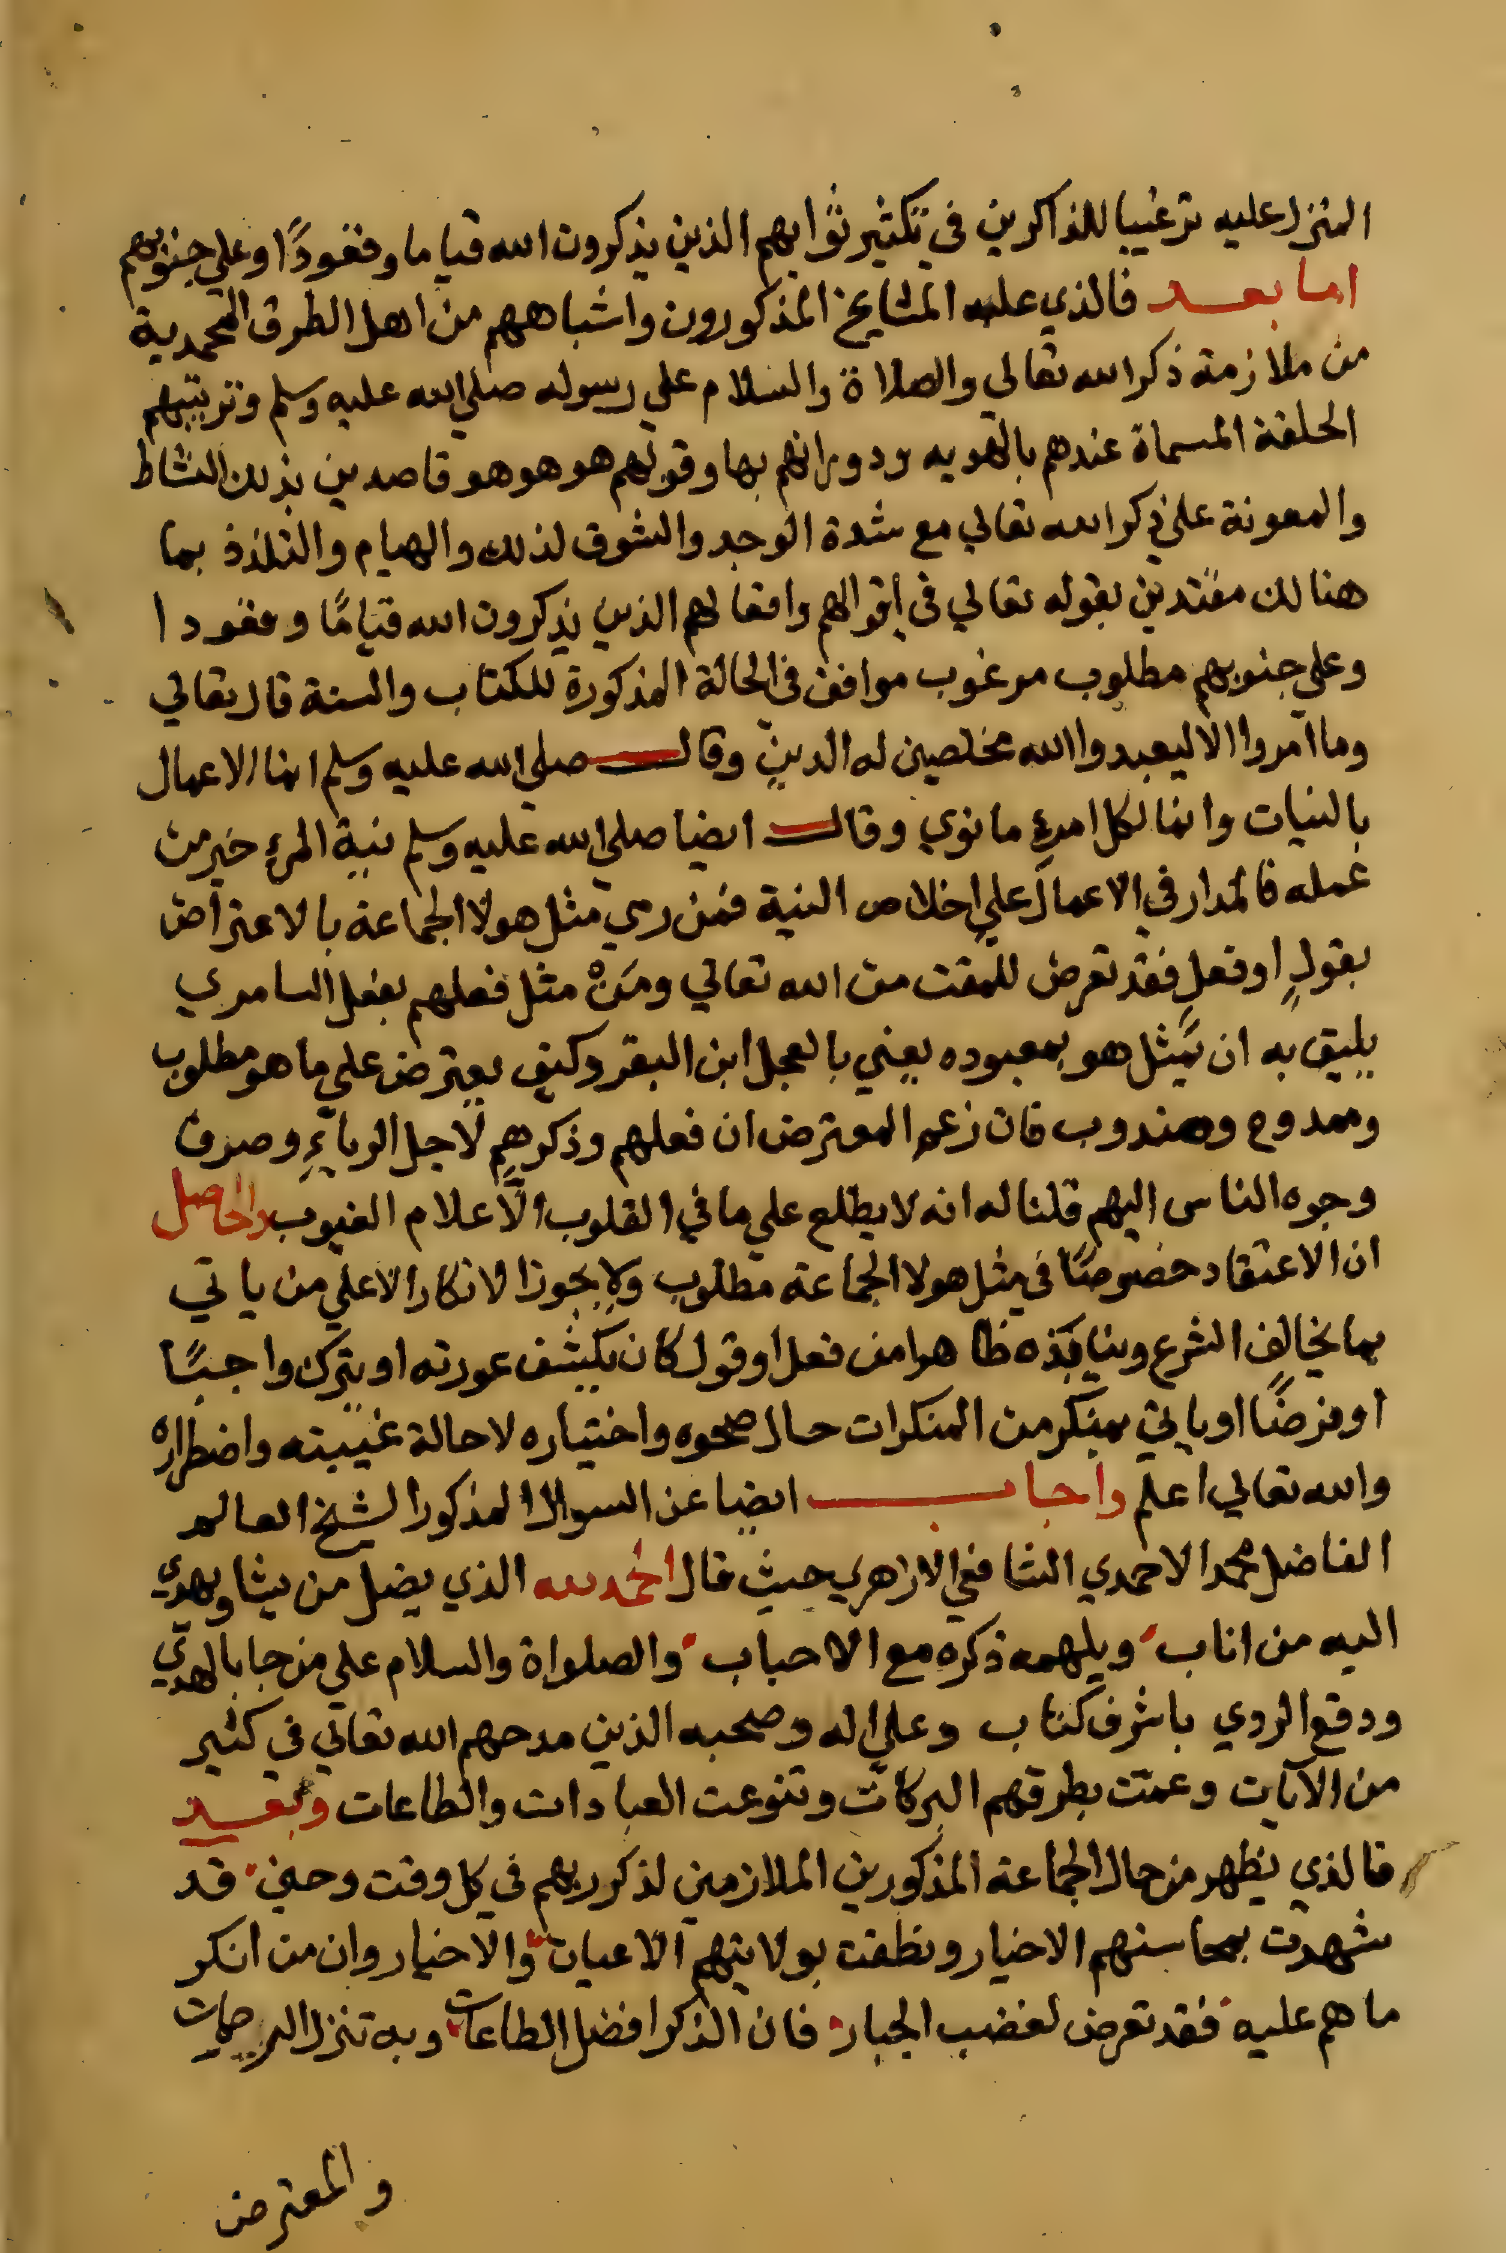 المنزل عليه ترغيبا للذاكرين في تكثير ثوابهم الذين يذكرون الله قياما وقعودًا وعلي جنوبهم
اما بعد فالذي عليه المشايخ المذكورون واشباههم من اهل الطرق المحمدية
من ملازمة ذكر الله تعالي والصلاة والسلام علي رسوله صلي الله عليه وسلم وترتيبهم
الحلقة المسماة عندهم بالهويه ودورانهم بها وقولهم هو هو هو قاصدين بذلك النشاط
والمعونة علي ذكر الله تعالي مع شدة الوجد والشوق لذلك والهيام والتلذذ بما
هنالك مقتدين بقوله تعالي في اقوالهم وافعالهم الذين يذكرون الله قيامًا وقعودا
وعلي جنوبهم مطلوب مرغوب موافق في الحالة المذكورة للكتاب والسنة قال تعالي
وما امروا الا ليعبدوا الله مخلصين له الدين وقال صلي الله عليه وسلم انما الاعمال
بالنيات وانما لكل امرءٍ ما نوي وقال ايضا صلي الله عليه وسلم نية المرءِ خير من
عمله فالمدار في الاعمال علي اخلاص النية فمن رمي مثل هولا الجماعة بالاعتراض
بقولٍ او فعلٍ فقد تعرض للمقت من الله تعالي ومَنْ مثل فعلهم بفعل السامري
يليق به ان يُمثل هو بمعبوده يعني بالعجل ابن البقر وكيف يعترض علي ما هو مطلوب
وممدوح ومندوب فان زعم المعترض ان فعلهم وذكرهم لاجل الرياءِ وصرف
وجوه الناس اليهم قلنا له انه لا يطلع علي ما في القلوب الّا علام الغيوب والحاصل
ان الاعتقاد خصوصًا في مثل هولا الجماعة مطلوب ولا يجوز الانكار الا علي من ياتي
بما يخالف الشرع وينابذه ظاهرا من فعل او قول كان يكشف عورته او يترك واجبًا
او فرضًا او ياتي بمنكر من المنكرات حال صحوه واختياره لا حالة غيبته واضطراره
والله تعالي اعلم واجاب ايضا عن السوال المذكور الشيخ العالم
الفاضل محمد الاحمدي الشافعي الازهري حيث قال الحمد لله الذي يضل من يشا ويهدي
اليه من اناب ويلهمه ذكره مع الاحباب والصلواة والسلام علي من جا بالهدي
ودفع الردي باشرف كتاب وعلي اله وصحبه الذين مدحهم الله تعالي في كثير
من الآيات وعمّت بطرقهم البركات وتنوعت العبادات والطاعات وبعد
فالذي يظهر من حال الجماعة المذكورين الملازمين لذكر ربهم في كل وقت وحين قد
شهدت بمحاسنهم الاخيار ونطقت بولايتهم الاعيان والاخيار وان من انكر
ما هم عليه فقد تعرض لغضب الجبار فان الذكر افضل الطاعات وبه تنزل
والمعترض